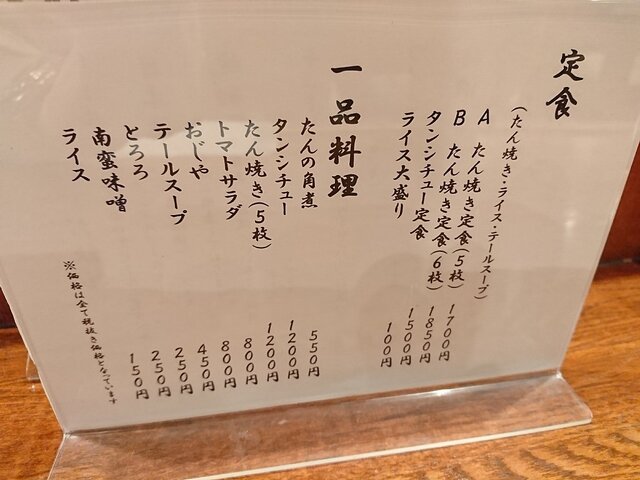 定食
(たん焼き・ライス・テールスープ)
A たん焼き定食(5枚) 1700円
B たん焼き定食(6枚) 1850円
タンシチュー定食 1500円
ライス大盛り 100円
一品料理
たんの角煮 550円
タンシチュー 1200円
たん焼き(5枚) 1200円
トマトサラダ 800円
おじや 800円
テールスープ 450円
とろろ 250円
南蛮味噌 250円
ライス 150円
※価格は全て税抜き価格となっています